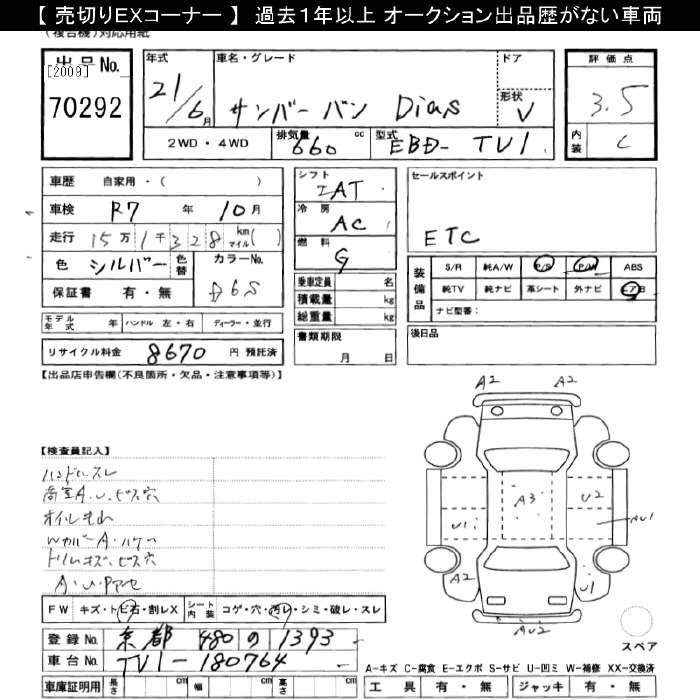 【 売切りEXコーナー 】 過去１年以上 オークション出品歴がない車両
(複合機)対応用紙
出 品 No. [2009] 70292
年式 21/6月
車名・グレード サンバーバン Dias
ドア
形状 V
評 価 点 3.5
内装 C
2WD ・ 4WD
排気量 660 cc
型式 EBD- TV1
車歴 自家用 ・ ( )
車検 R7 年 10 月
走行 15 万 1 千 3 2 8 km マイル ( )
色 シルバー 色替
カラーNo. D6S
保証書 有 ・ 無
シフト IAT
冷 房 AC
燃 料 G
乗車定員 名
積載量 kg
総重量 kg
セールスポイント
ETC
装備品
S/R 純A/W P/S P/W ABS
純TV 純ナビ 革シート 外ナビ エアB
ナビ型番:
モデル年式 年 ハンドル 左・右 ディーラー・並行
リサイクル料金 8670 円 預託済
書類期限 月 日
後日品
【出品店申告欄(不良箇所・欠品・注意事項等)】
【検査員記入】
ハンドルスレ
荷室A.U.ビス穴
オイルもれ
WカバーA・ハゲ
トリムキズ、ビス穴
A.U.
A2 A2
A3
U2
U1
AU1
A2
U1
AU2
FW キズ・トビ石・割レX シート内装 コゲ・穴・汚レ・シミ・破レ・スレ
登録 No. 京都 480 の 1393
車台 No. TV1-180764
車庫証明用 長さ cm 幅 cm 高さ cm
スペア
A-キズ C-腐食 E-エクボ S-サビ U-凹ミ W-補修 XX-交換済
工 具 有 ・ 無 ジャッキ 有 ・ 無